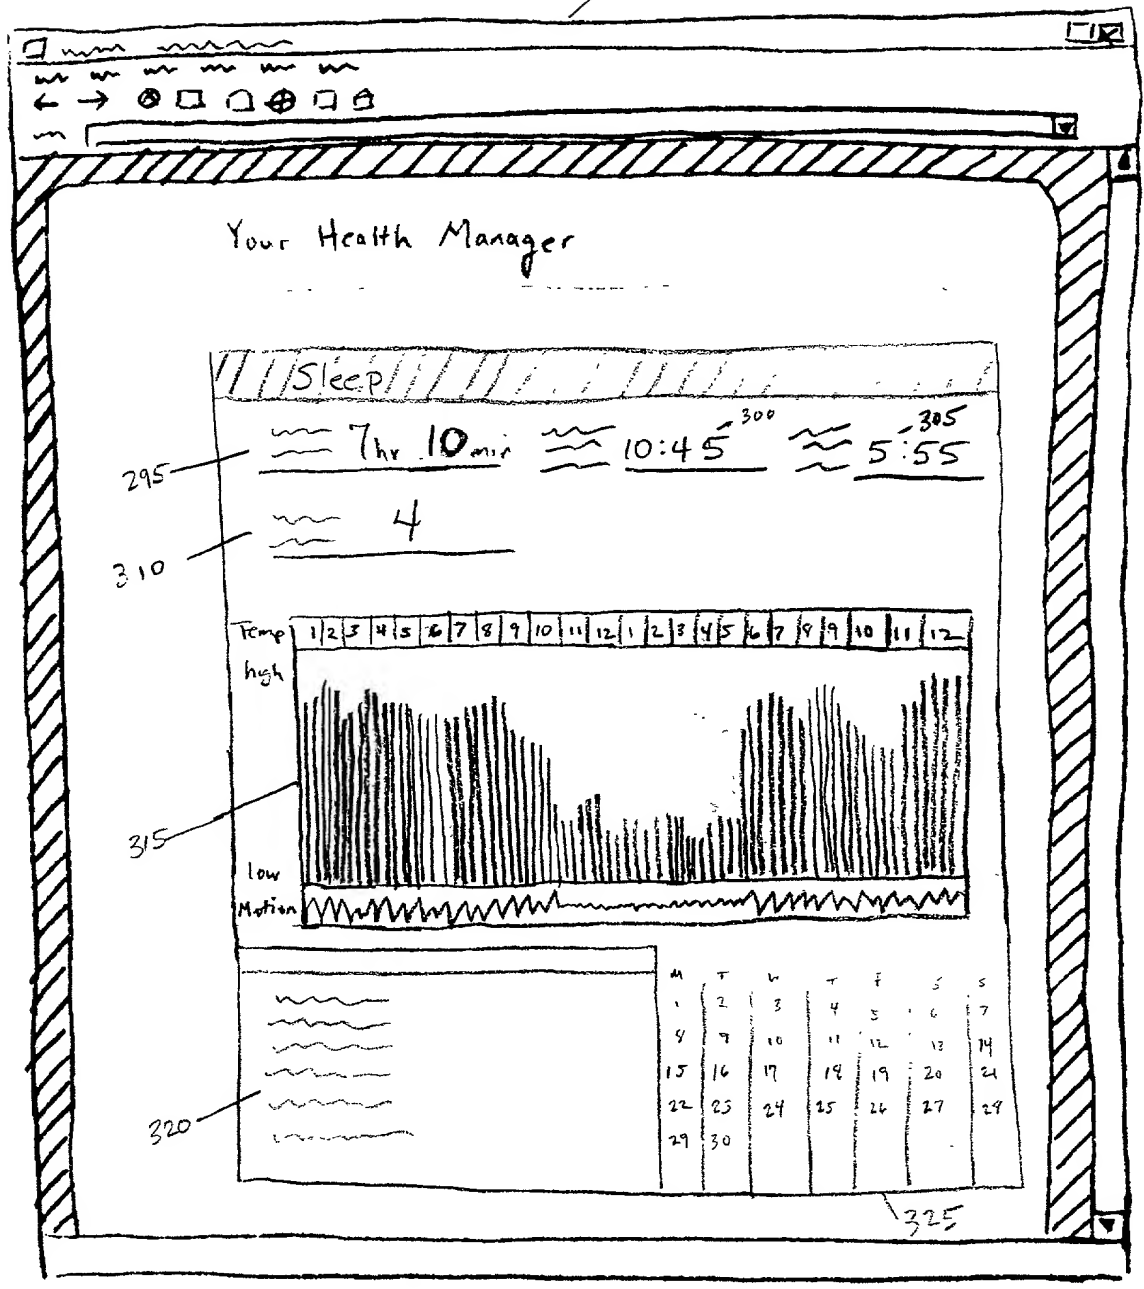 Your Health Manager
Sleep
300
305
7hr 10min
10:45
5:55
295
4
310
Temp 1 2 3 4 5 6 7 8 9 10 11 12 1 2 3 4 5 6 7 8 9 10 11 12
high
315
low
Motion
M T W T F S S
1 2 3 4 5 6 7
8 9 10 11 12 13 14
15 16 17 18 19 20 21
22 23 24 25 26 27 28
29 30
320
325